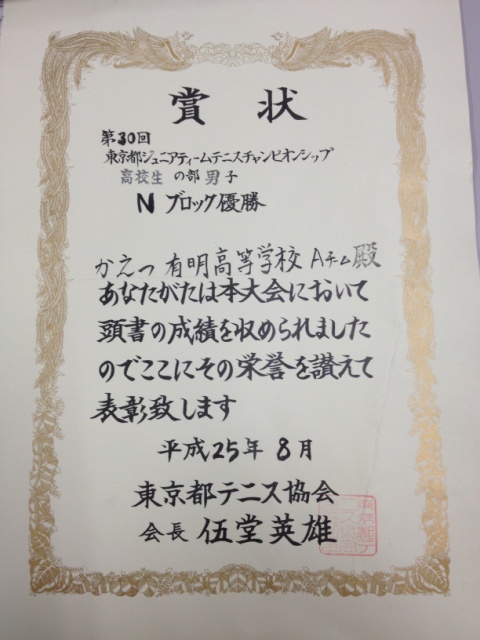 賞状
第30回
東京都ジュニアティームテニスチャンピオンシップ
高校生の部男子
Nブロック優勝
かえつ有明高等学校 Aチーム殿
あなたがたは本大会において
頭書の成績を収められました
のでここにその栄誉を讃えて
表彰致します
平成25年8月
東京都テニス協会
会長 伍堂英雄